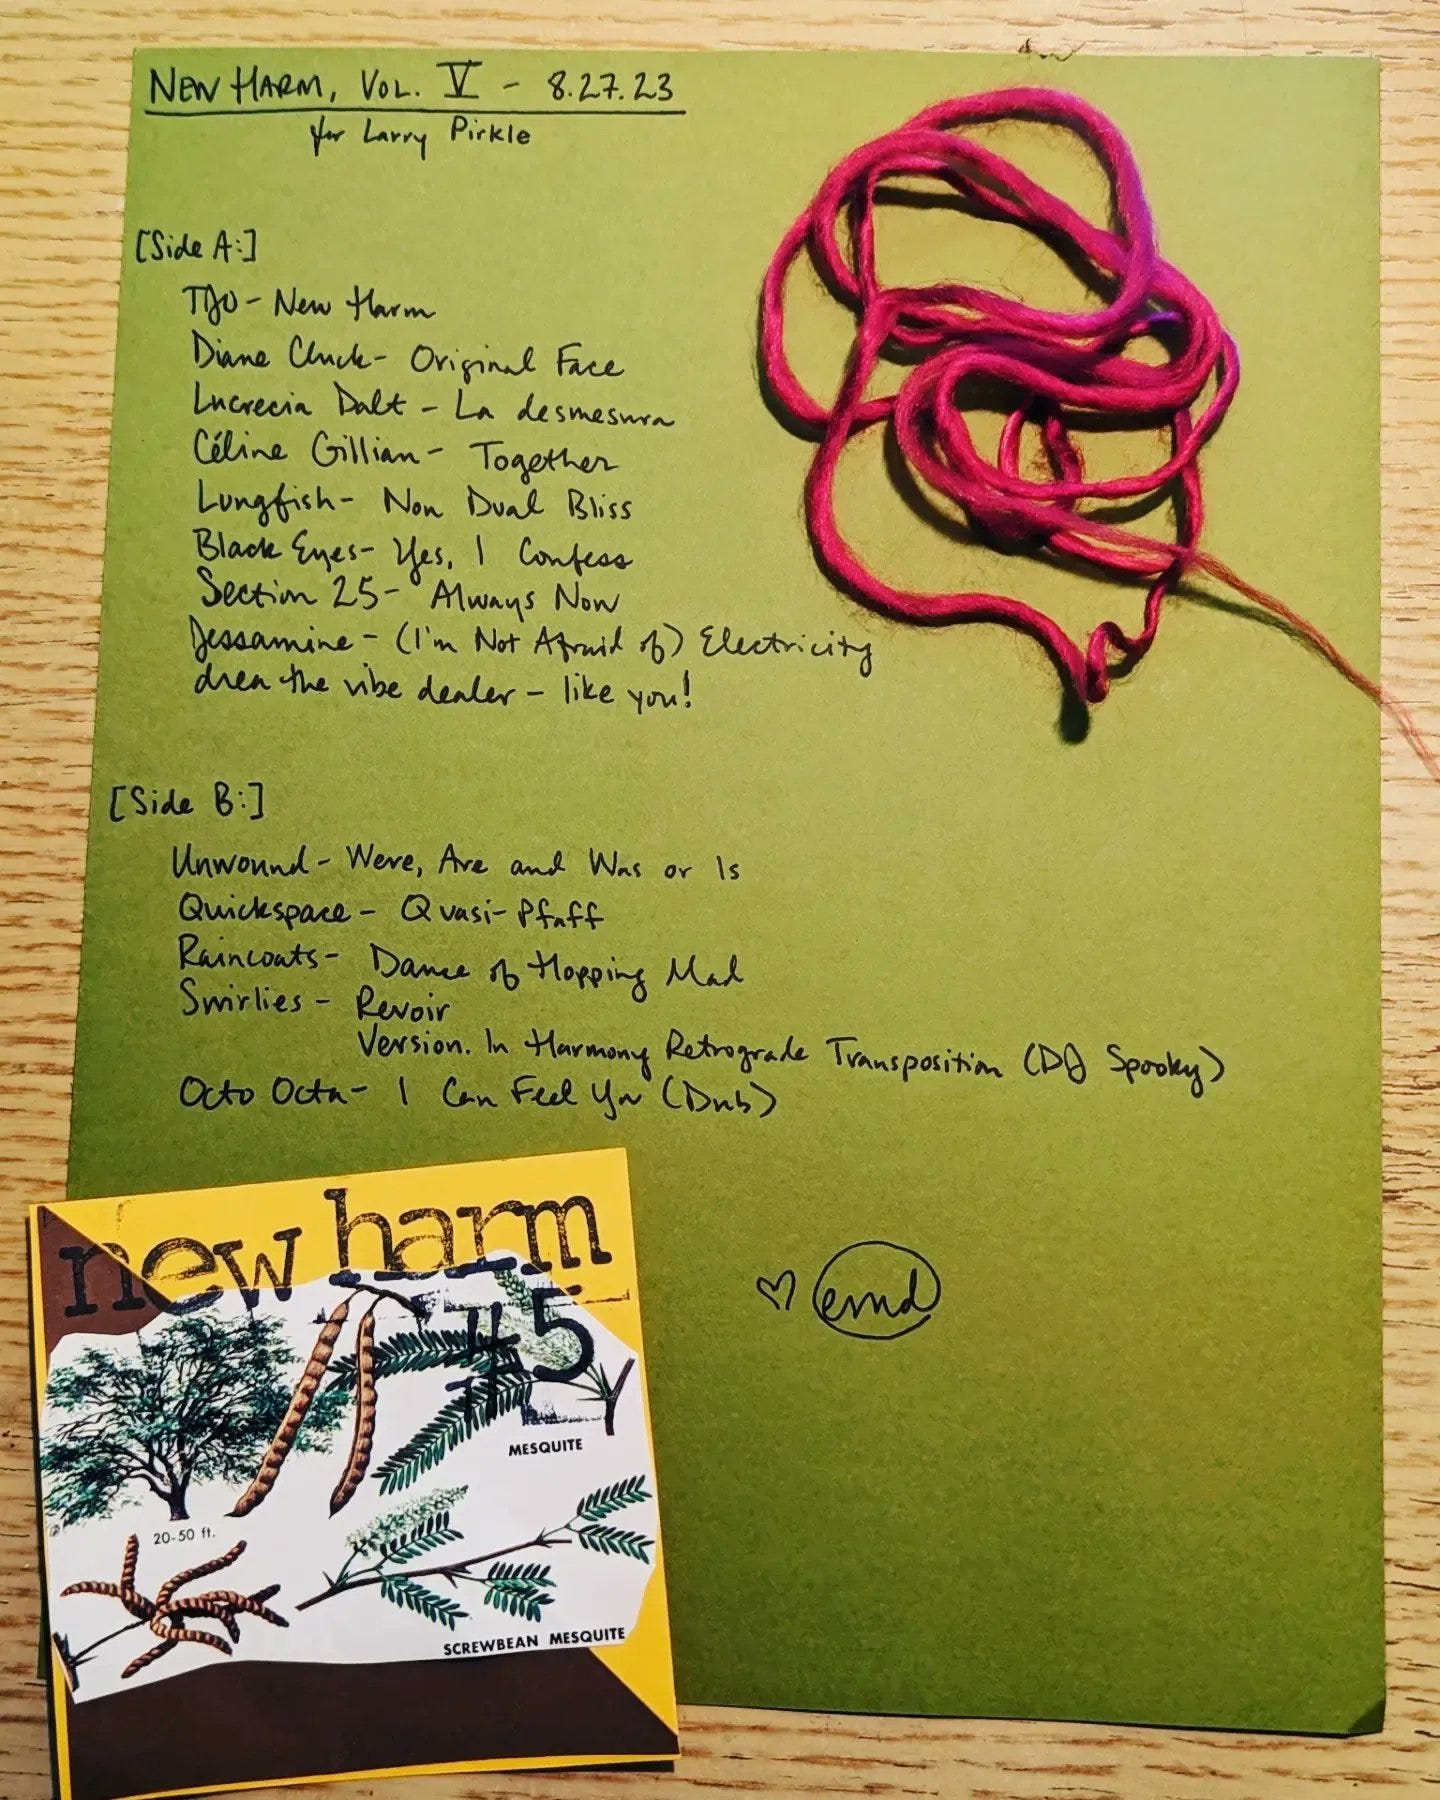 NEW HARM, VOL. V - 8.27.23
for Larry Pirkle
[Side A:]
TJO - New Harm
Diane Cluck - Original Face
Lucrecia Dalt - La desmesura
Céline Gillian - Together
Lungfish - Non Dual Bliss
Black Eyes - Yes, I Confess
Section 25 - Always Now
Jessamine - (I'm Not Afraid of) Electricity
drea the vibe dealer - like you!
[Side B:]
Unwound - Were, Are and Was or Is
Quickspace - Quasi-Pfaff
Raincoats - Dance of Hopping Mad
Swirlies - Revoir
Version. In Harmony Retrograde Transposition (DJ Spooky)
Octo Octa - I Can Feel You (Dub)
new harm
#5
MESQUITE
20-50 ft.
SCREWBEAN MESQUITE
♡ emd